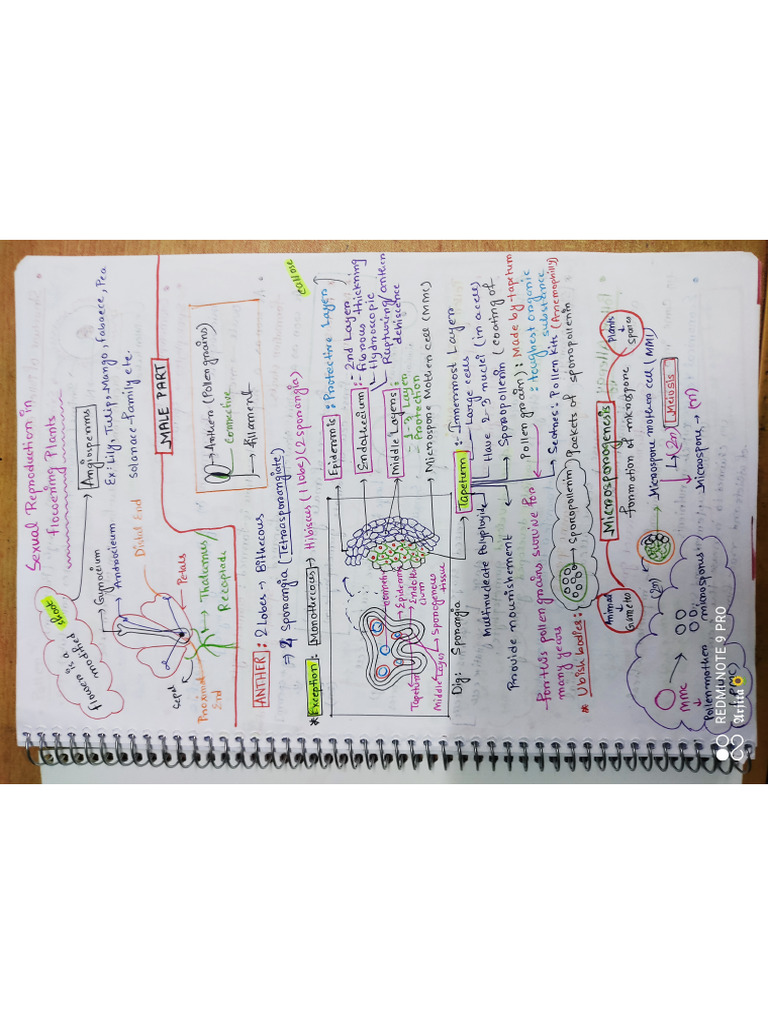 Sexual Reproduction in
flowering Plants
flower is a
modified
shoot
Angiosperms
Ex: Lily, Tulip, Mango, Fabaece, Pea
solanace-Family etc.
Gynoecium
Androecium
Distal End
Petals
Sepal
Thalamus/
Receptacle
Proximal
End
MALE PART
Anthers (Pollen grains)
Connective
filament
ANTHER : 2 Lobes → Bithecous
⇒ 4 Sporangia (Tetrasporangiate)
* Exception : Monothecous → Hibiscus (1 lobe) (2 sporangia)
callose
Epidermis : Protective Layer
Endothecium :- 2nd Layer
- fibrous thickning
Hydroscopic
Rupturing/anthern
dehiscence
Middle Layers :
1-3 Layer
- Protection
Microspore Mother cell (MMC)
Epidermis
Endothe
cium
Sporogenous
tissue
Tapetum
Middle layer
Dig: Sporangia
Tapetum : Innermost Layer
Large cells
Have 2-3 nuclei (in a cell)
Multinucleate Polyploidy
Sporopollenin (coating of
Pollen grain) : Made by-tapetum
: toughest organic
substance
Provide nourishment
Secretes: Pollen Kitt (Anemophilly)
For this pollen grains survive for
many years
* Ubish bodies:
Sporopollenin Packets of sporopollenin
Microsporogenesis
formation of microspore
Animal
↓
Gametes
Plants
↓
spores
(2n)
Microspore mother cell (MMC)
↓ (2n) Meiosis
Microspore → (n)
MMC
microspores
↓
Pollen mother
(PMC)
REDMI NOTE 9 PRO